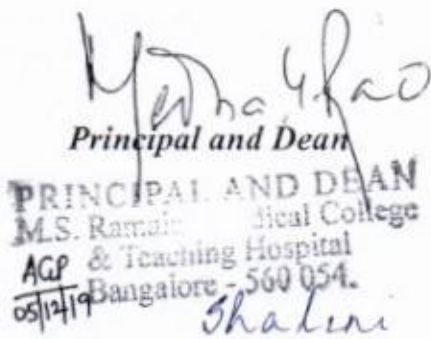 Medha Y Rao
Principal and Dean
PRINCIPAL AND DEAN
M.S. Ramai dical College
& Teaching Hospital
AGP
05/12/19 Bangalore - 560 054.
Shalini